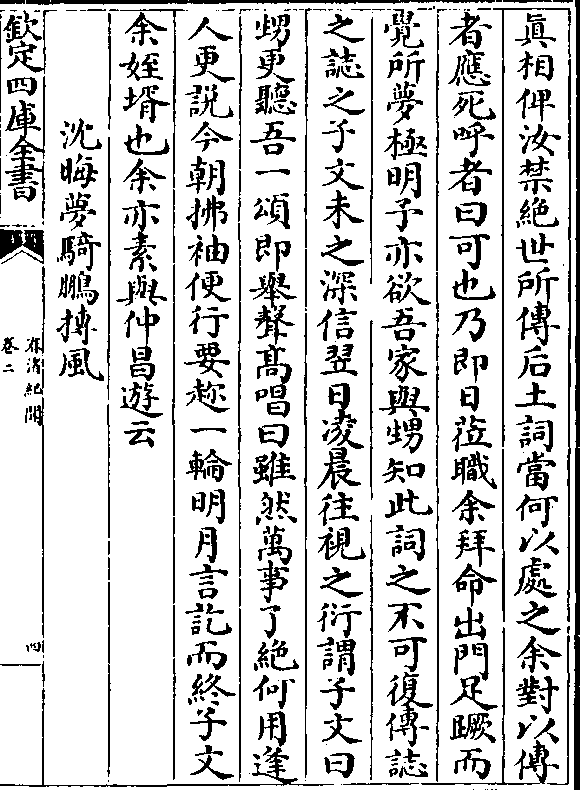 真相俾汝禁絶世所傳后土詞當何以處之余對以傳
者應死呼者曰可也乃即日蒞職余拜命出門足蹶而
覺所夢極明予亦欲吾家與甥知此詞之不可復傳誌
之誌之子文未之深信翌日凌晨往視之衍謂子文曰
甥更聽吾一頌即舉聲髙唱曰雖然萬事了絶何用逢
人更説今朝拂袖便行要趂一輪明月言訖而終子文
余姪壻也余亦素與仲昌遊云
沈晦夢騎鵬摶風
欽定四庫全書
春渚紀聞
卷二
四